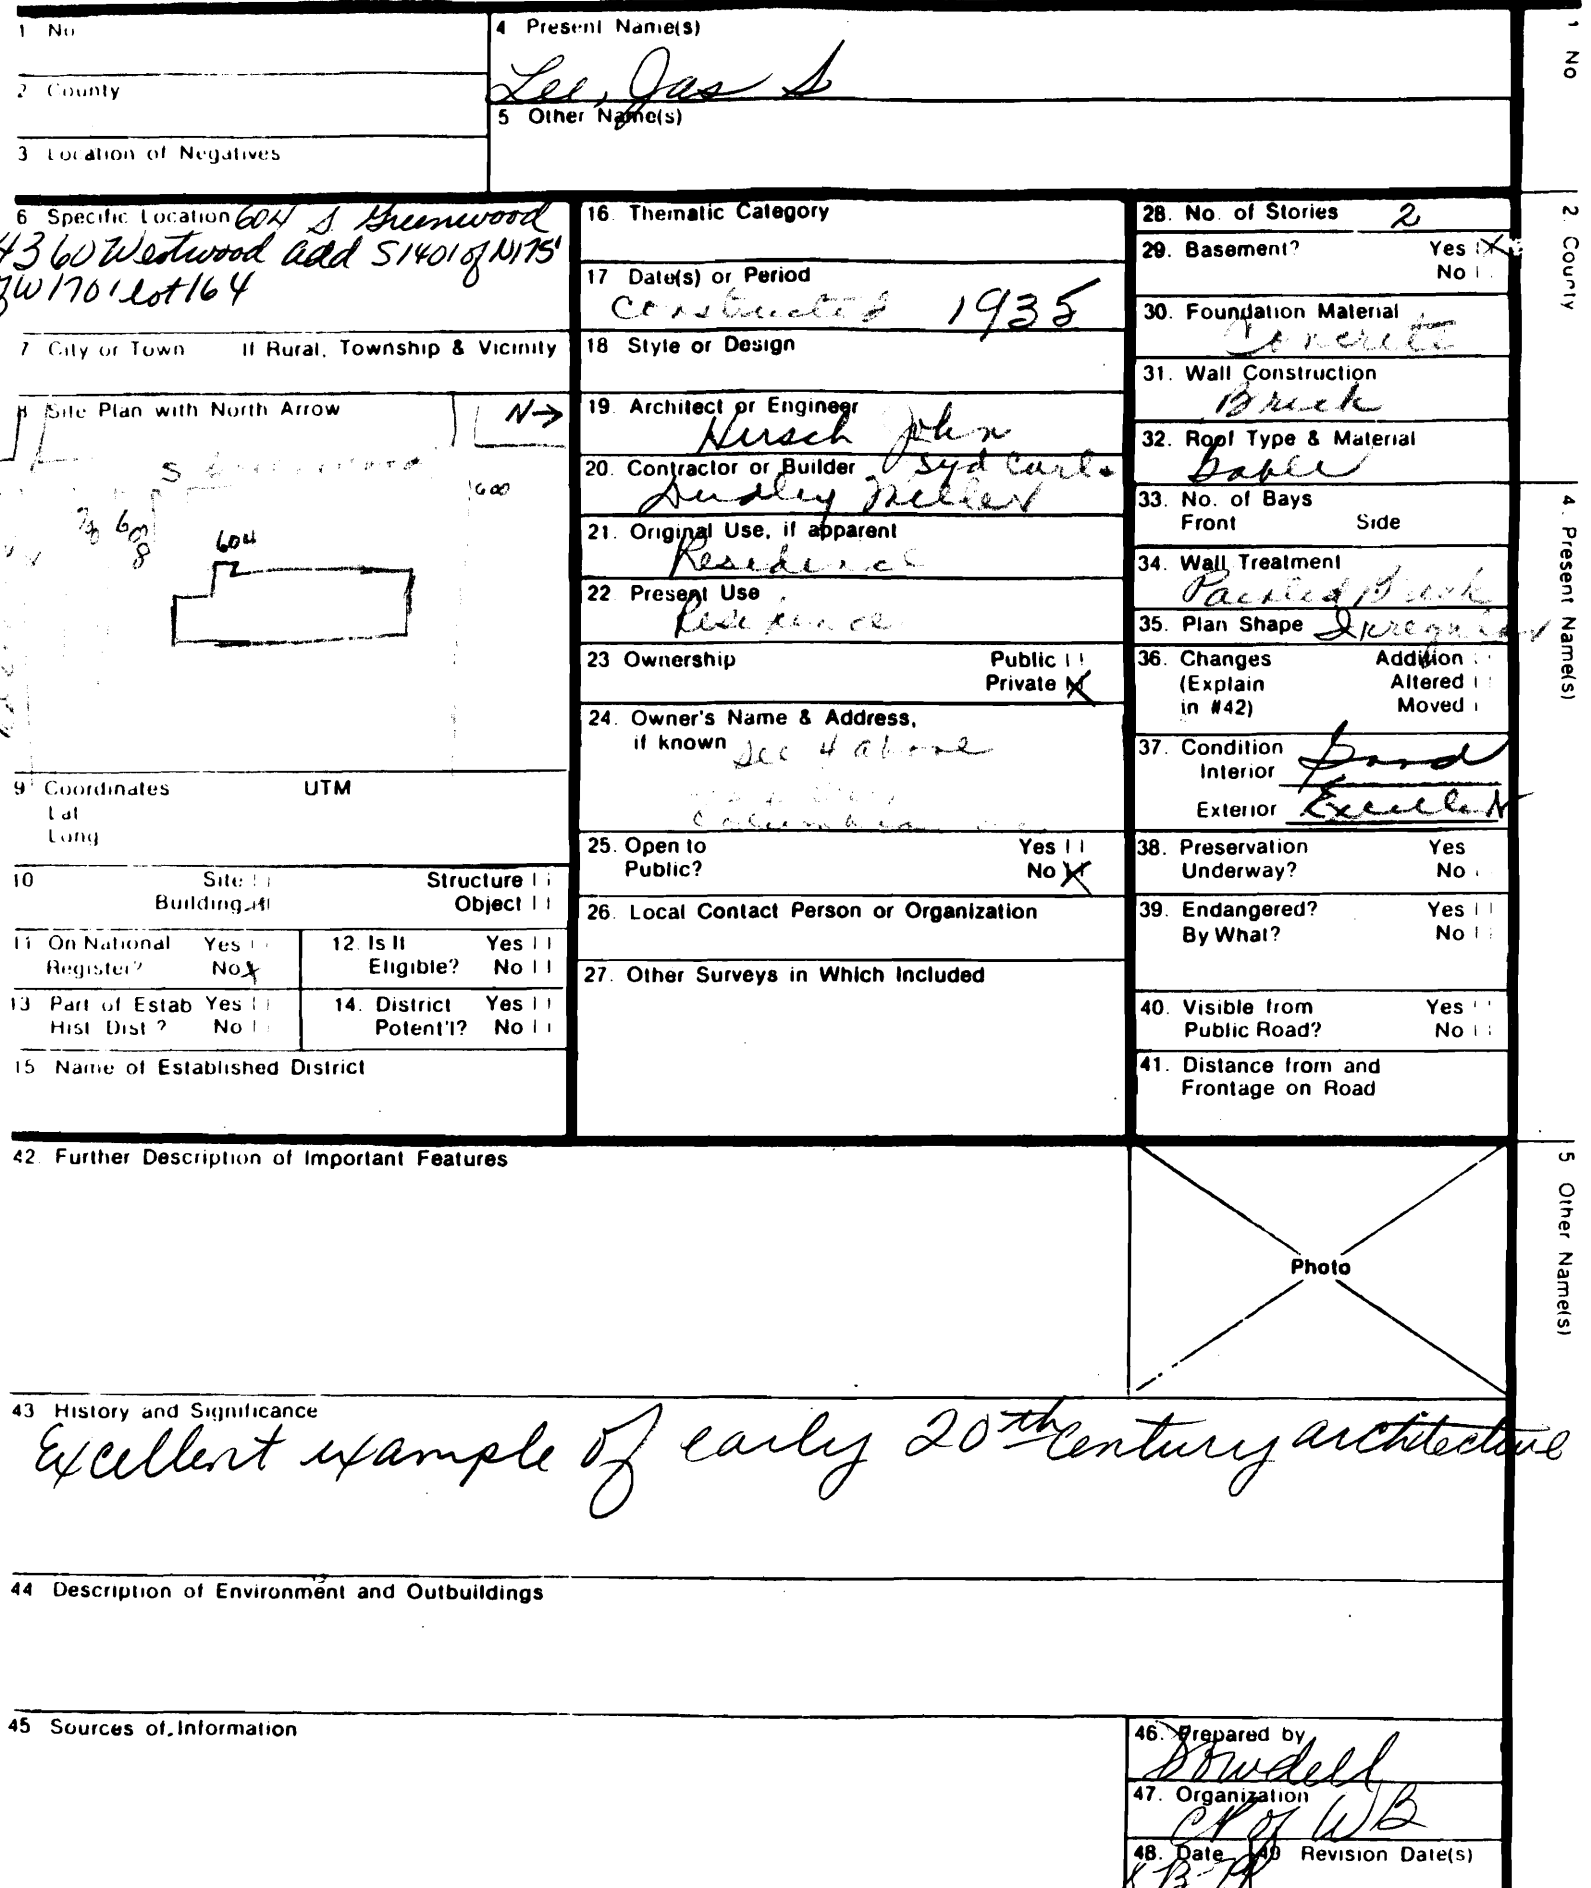 1 No
4 Present Name(s)
Lee, Jas S
2 County
5 Other Name(s)
3 Location of Negatives
6 Specific Location 604 S Greenwood
4360 Westwood add S1401 of N175'
W1701 lot 164
7 City or Town If Rural, Township & Vicinity
8 Site Plan with North Arrow
N→
S Greenwood
600
608
604
9 Coordinates UTM
Lat
Long
10 Site Structure
Building Object
11 On National Register? Yes No X
12. Is It Eligible? Yes No
13 Part of Estab Hist Dist? Yes No
14. District Potent'l? Yes No
15 Name of Established District
16. Thematic Category
17 Date(s) or Period
Constructed 1935
18 Style or Design
19. Architect or Engineer
Hirsch John
20. Contractor or Builder Syd Carl.
Dudley Miller
21. Original Use, if apparent
Residence
22 Present Use
Residence
23 Ownership Public
Private X
24. Owner's Name & Address,
if known See 4 above
Columbia
25. Open to Yes
Public? No X
26. Local Contact Person or Organization
27. Other Surveys in Which Included
28. No. of Stories 2
29. Basement? Yes X
No
30. Foundation Material
Concrete
31. Wall Construction
Brick
32. Roof Type & Material
Gable
33. No. of Bays
Front Side
34. Wall Treatment
Painted Brick
35. Plan Shape Irregular
36. Changes Addition
(Explain Altered
in #42) Moved
37. Condition
Interior Good
Exterior Excellent
38. Preservation Yes
Underway? No
39. Endangered? Yes
By What? No
40. Visible from Yes
Public Road? No
41. Distance from and
Frontage on Road
1 No
2 County
4. Present Name(s)
5 Other Name(s)
42. Further Description of Important Features
Photo
43 History and Significance
Excellent example of early 20th century architecture
44 Description of Environment and Outbuildings
45 Sources of Information
46. Prepared by
Dowdell
47. Organization
of WB
48. Date 49 Revision Date(s)